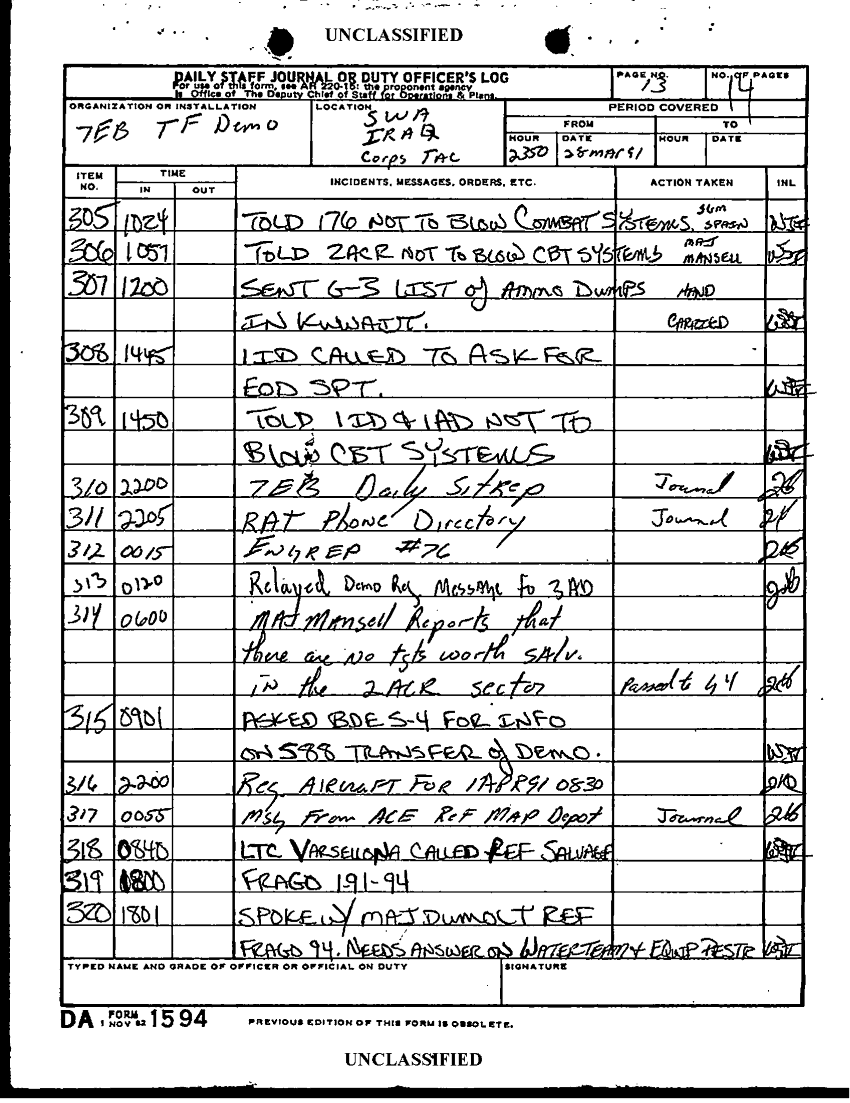 UNCLASSIFIED
DAILY STAFF JOURNAL OR DUTY OFFICER'S LOG
For use of this form, see AR 220-15; the proponent agency
is Office of The Deputy Chief of Staff for Operations & Plans.
PAGE NO. 13
NO. OF PAGES 14
ORGANIZATION OR INSTALLATION
7EB TF Demo
LOCATION
SWA
IRAQ
Corps TAC
PERIOD COVERED
FROM TO
HOUR DATE HOUR DATE
2350 28MAR91
ITEM NO. TIME IN OUT INCIDENTS, MESSAGES, ORDERS, ETC. ACTION TAKEN INL
305 1024 TOLD 176 NOT TO BLOW COMBAT SYSTEMS.
306 1057 TOLD 2ACR NOT TO BLOW CBT SYSTEMS MAJ MANSELL
307 1200 SENT G-3 LIST of Ammo DUMPS HAND
IN KUWAIT. CARRIED
308 1445 1ID CALLED TO ASK FOR
EOD SPT.
309 1450 TOLD 1ID & 1AD NOT TO
BLOW CBT SYSTEMS
310 2200 7EB Daily Sitrep Journal
311 2205 RAT Phone Directory Journal
312 0015 ENGREP #76
313 0120 Relayed Demo Req Message to 3AD
314 0600 MAJ MANsell Reports that
there are No tgts worth SAlv.
in the 2ACR sector Passed to G4
315 0901 ASKED BDE S-4 FOR INFO
ON 588 TRANSFER of DEMO.
316 2200 Req AIRCRAFT FOR 1APR91 0830
317 0055 Msg From ACE Ref MAP Depot Journal
318 0840 LTC VARSELLONA CALLED REF SALVAGE
319 1800 FRAGO 191-94
320 1801 SPOKE W/ MAJ DUMOLT REF
FRAGO 94. NEEDS ANSWER ON WATER TEAM & EQUIP
TYPED NAME AND GRADE OF OFFICER OR OFFICIAL ON DUTY SIGNATURE
DA FORM 1 NOV 62 1594 PREVIOUS EDITION OF THIS FORM IS OBSOLETE.
UNCLASSIFIED